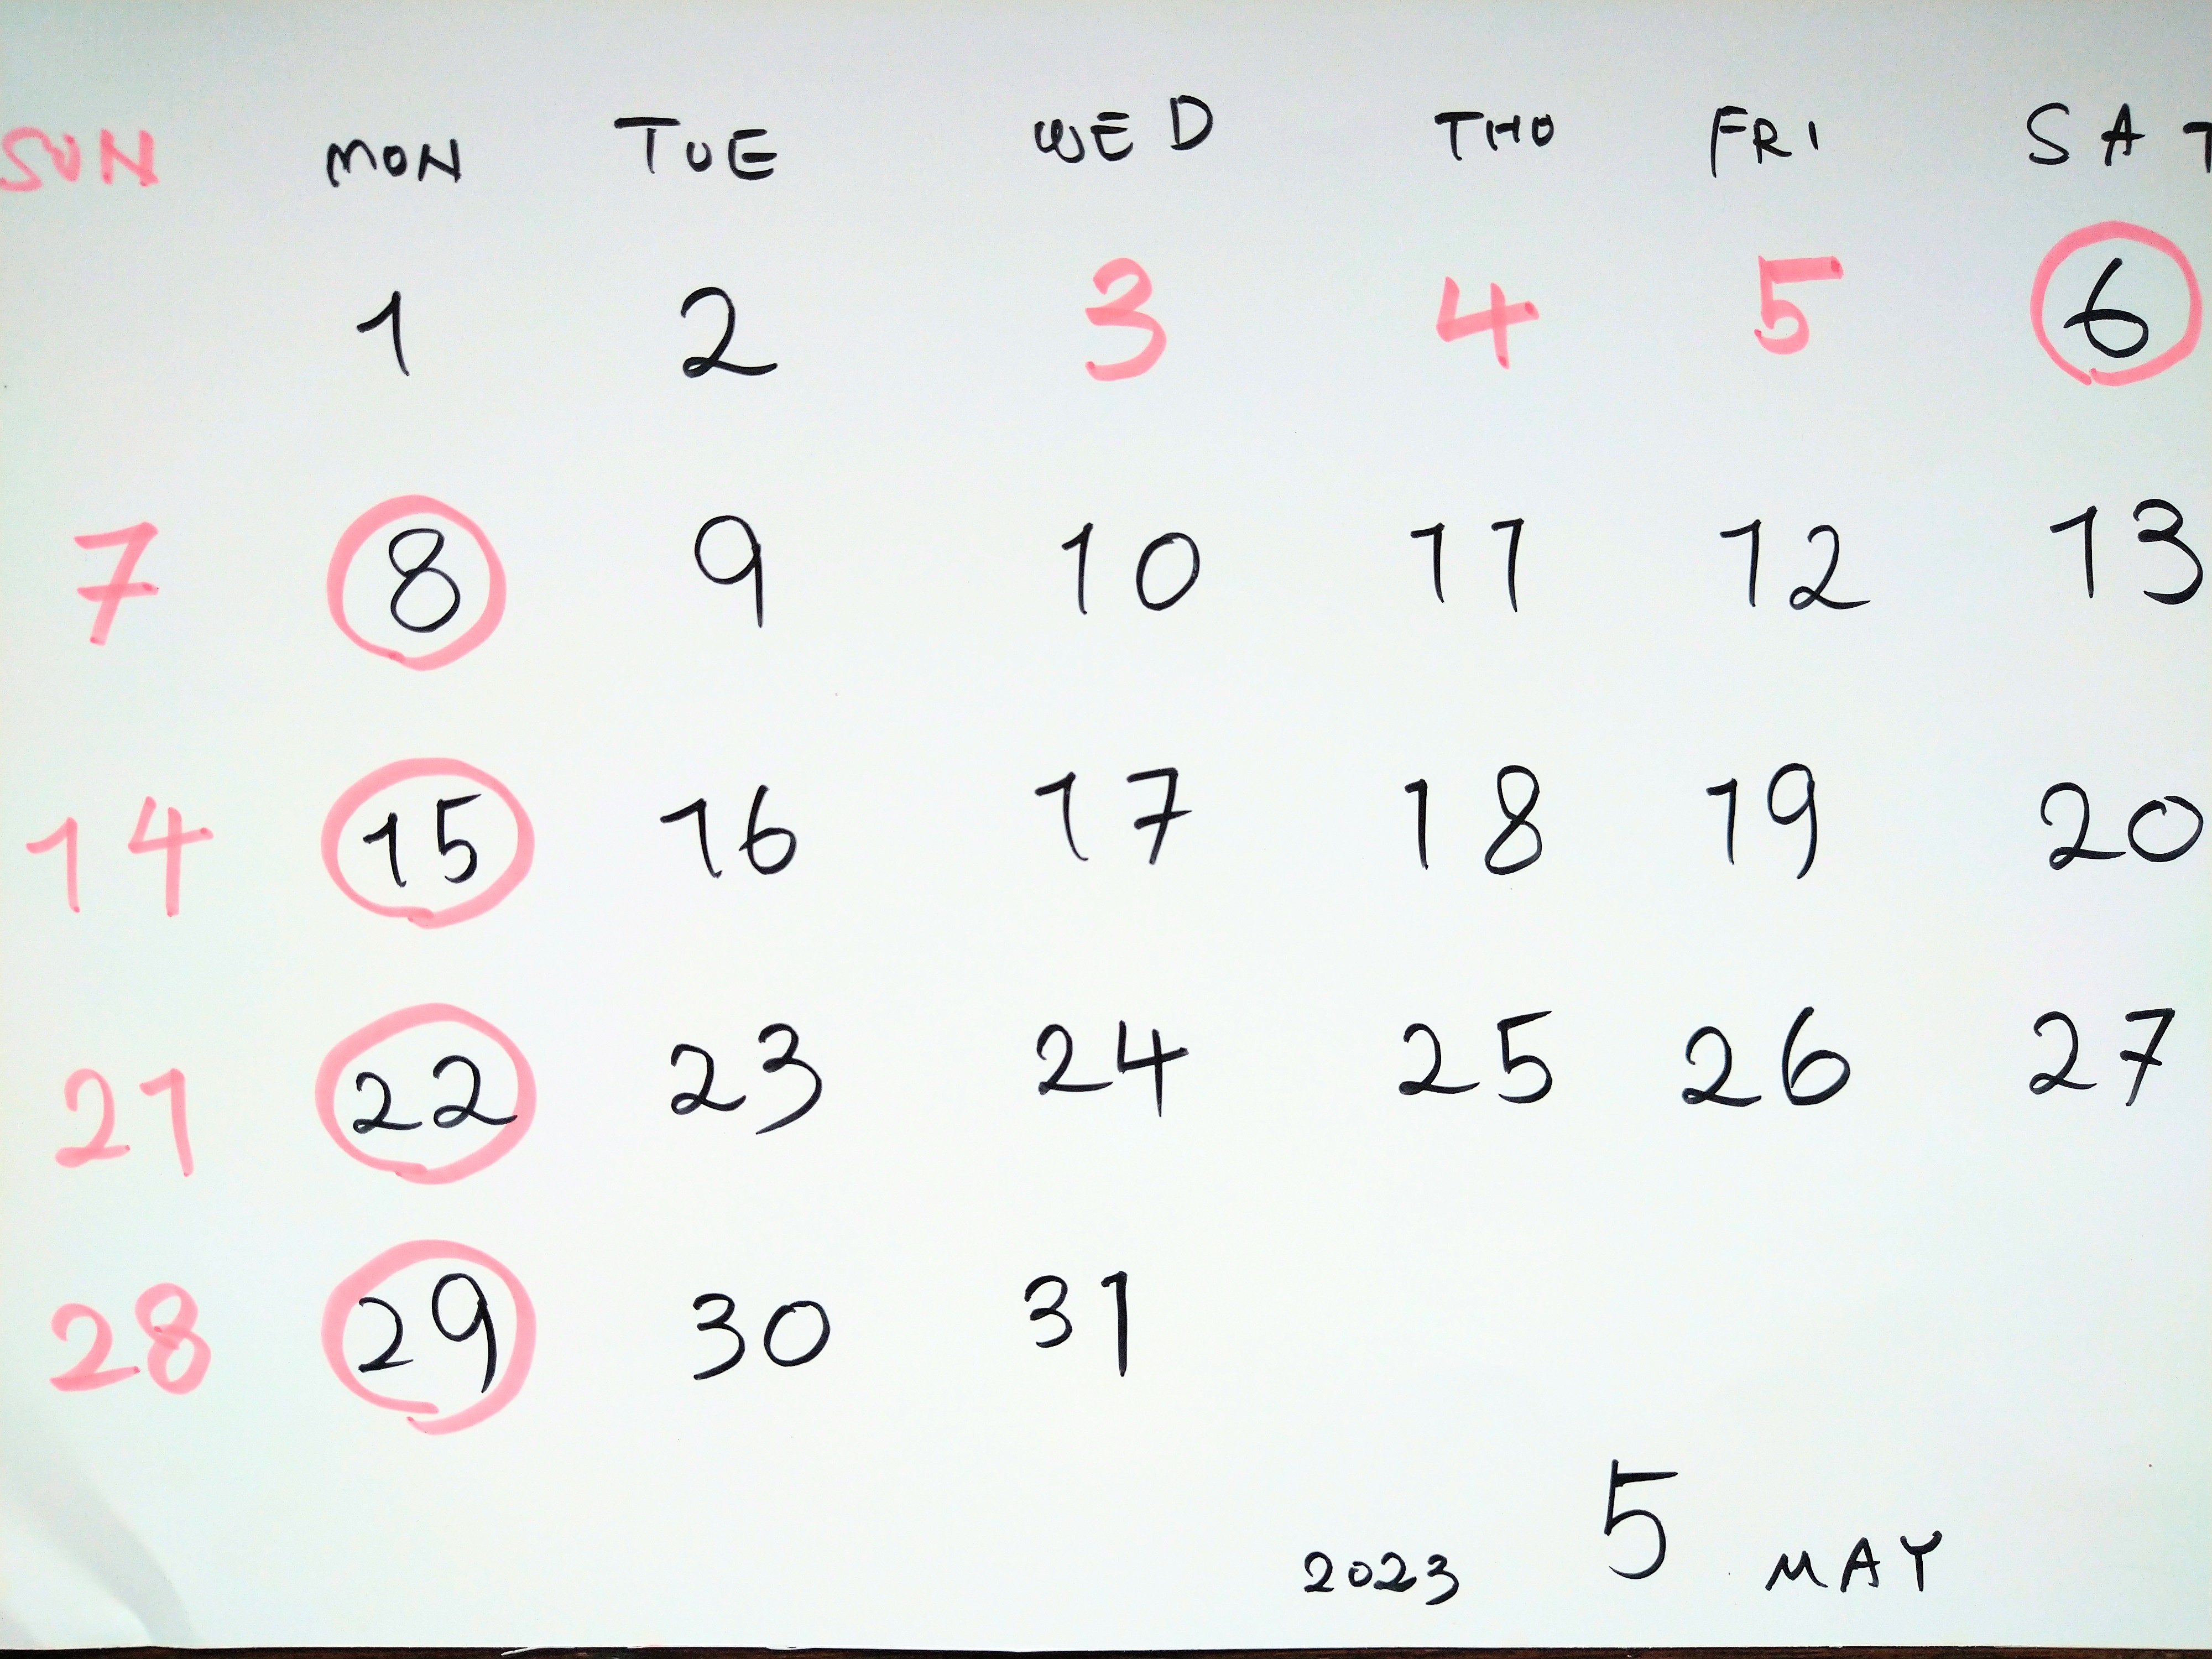 SUN MON TUE WED THU FRI SAT
1 2 3 4 5 6
7 8 9 10 11 12 13
14 15 16 17 18 19 20
21 22 23 24 25 26 27
28 29 30 31
2023 5 MAY